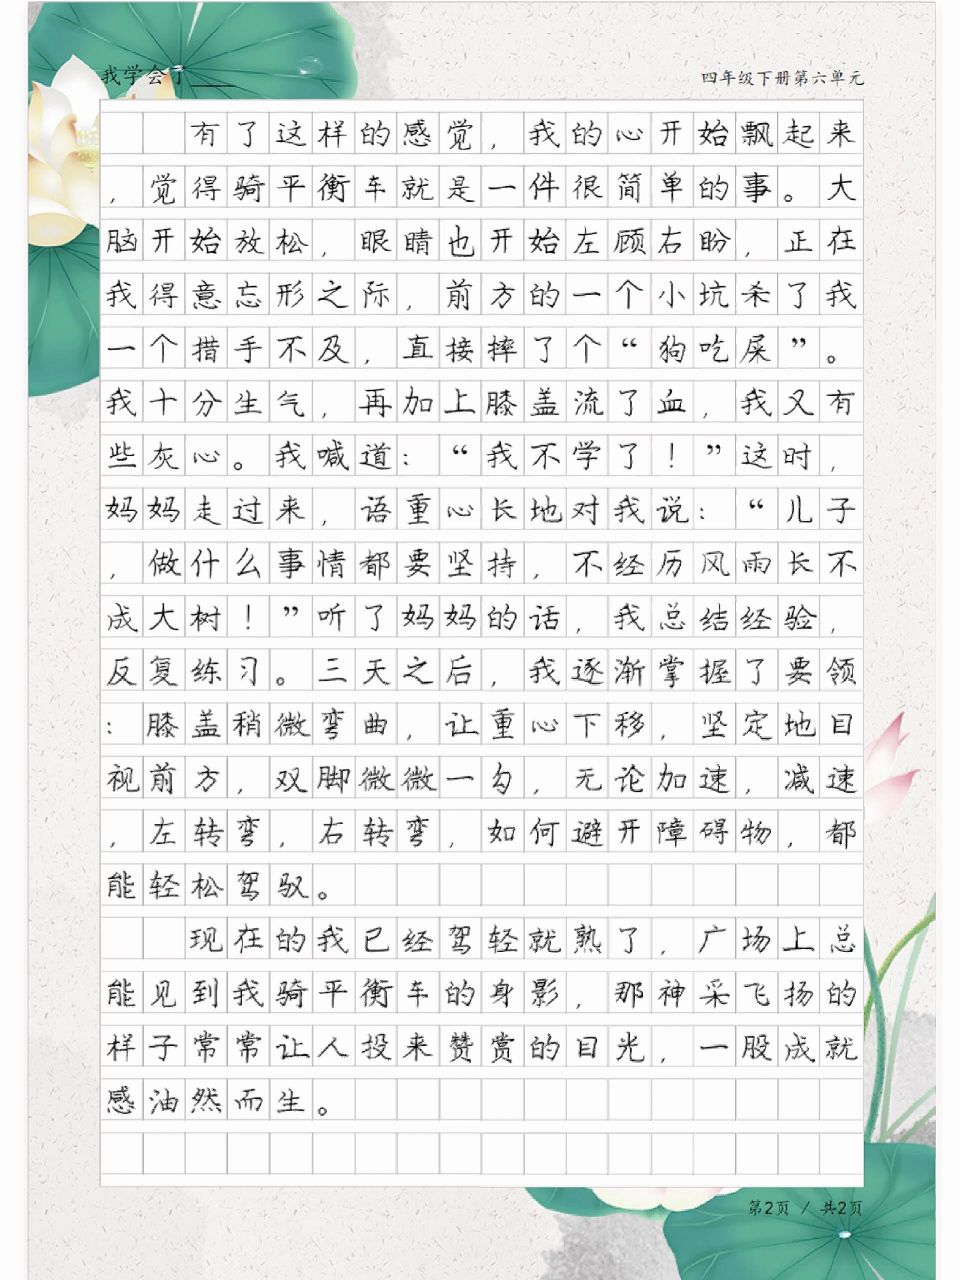 我学会了____
四年级下册第六单元
有了这样的感觉，我的心开始飘起来
，觉得骑平衡车就是一件很简单的事。大
脑开始放松，眼睛也开始左顾右盼，正在
我得意忘形之际，前方的一个小坑杀了我
一个措手不及，直接摔了个“狗吃屎”。
我十分生气，再加上膝盖流了血，我又有
些灰心。我喊道：“我不学了！”这时，
妈妈走过来，语重心长地对我说：“儿子
，做什么事情都要坚持，不经历风雨长不
成大树！”听了妈妈的话，我总结经验，
反复练习。三天之后，我逐渐掌握了要领
：膝盖稍微弯曲，让重心下移，坚定地目
视前方，双脚微微一勾，无论加速，减速
，左转弯，右转弯，如何避开障碍物，都
能轻松驾驭。
现在的我已经驾轻就熟了，广场上总
能见到我骑平衡车的身影，那神采飞扬的
样子常常让人投来赞赏的目光，一股成就
感油然而生。
第2页 / 共2页